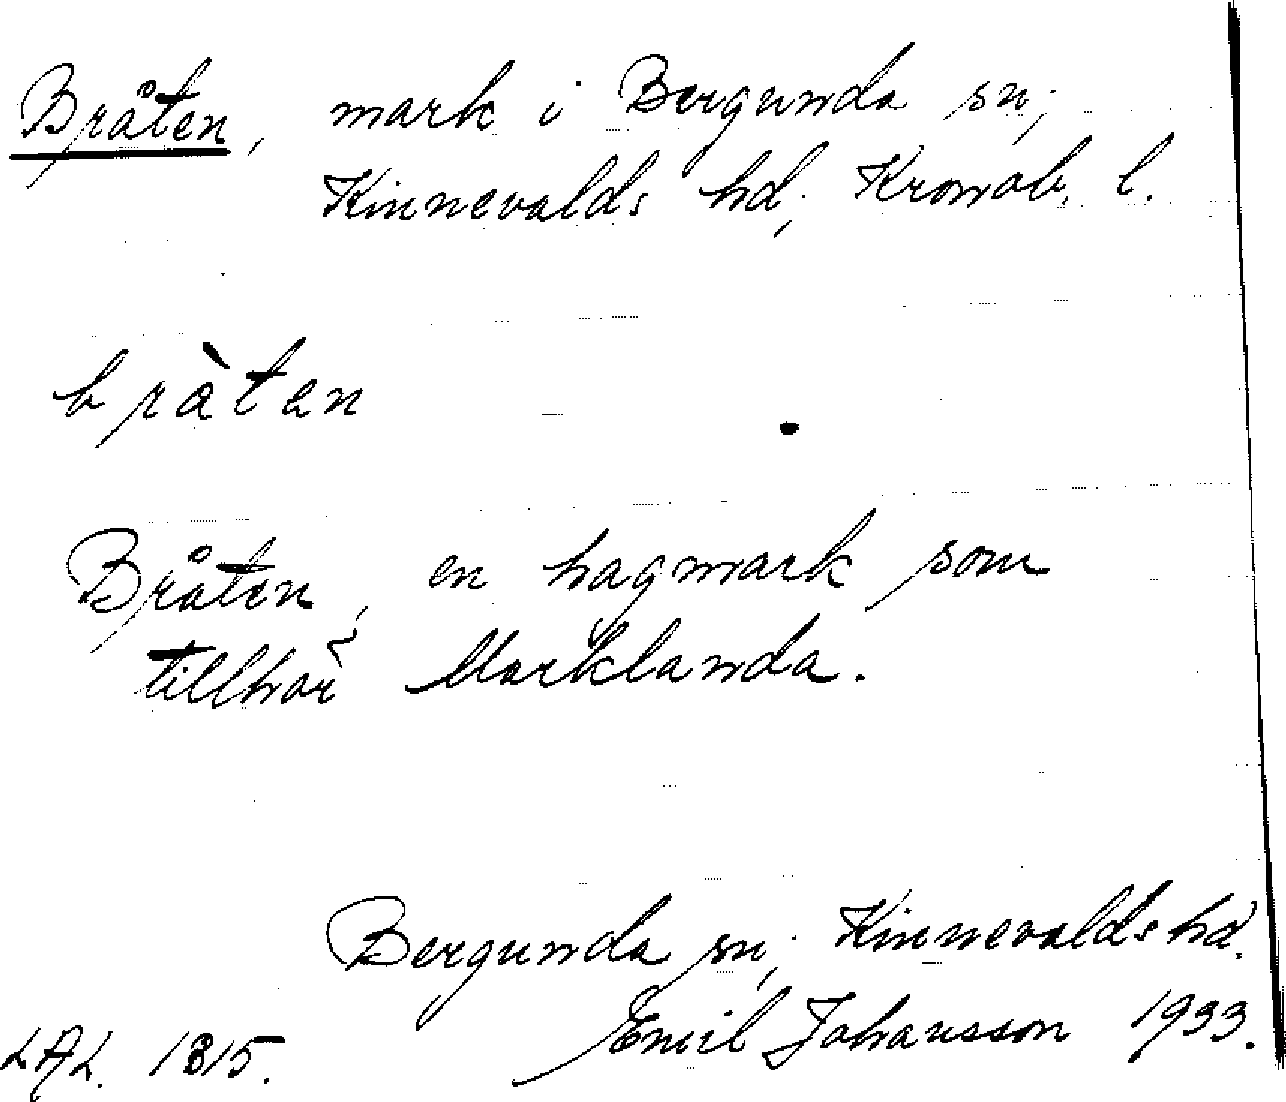 Bråten, mark i Bergunda sn,
Kinnevalds hd, Kronob. l.
bràten
Bråten, en hagmark som
tillhör Marklanda.
Bergunda sn, Kinnevalds hd.
Emil Johansson 1933.
LAL. 1315.